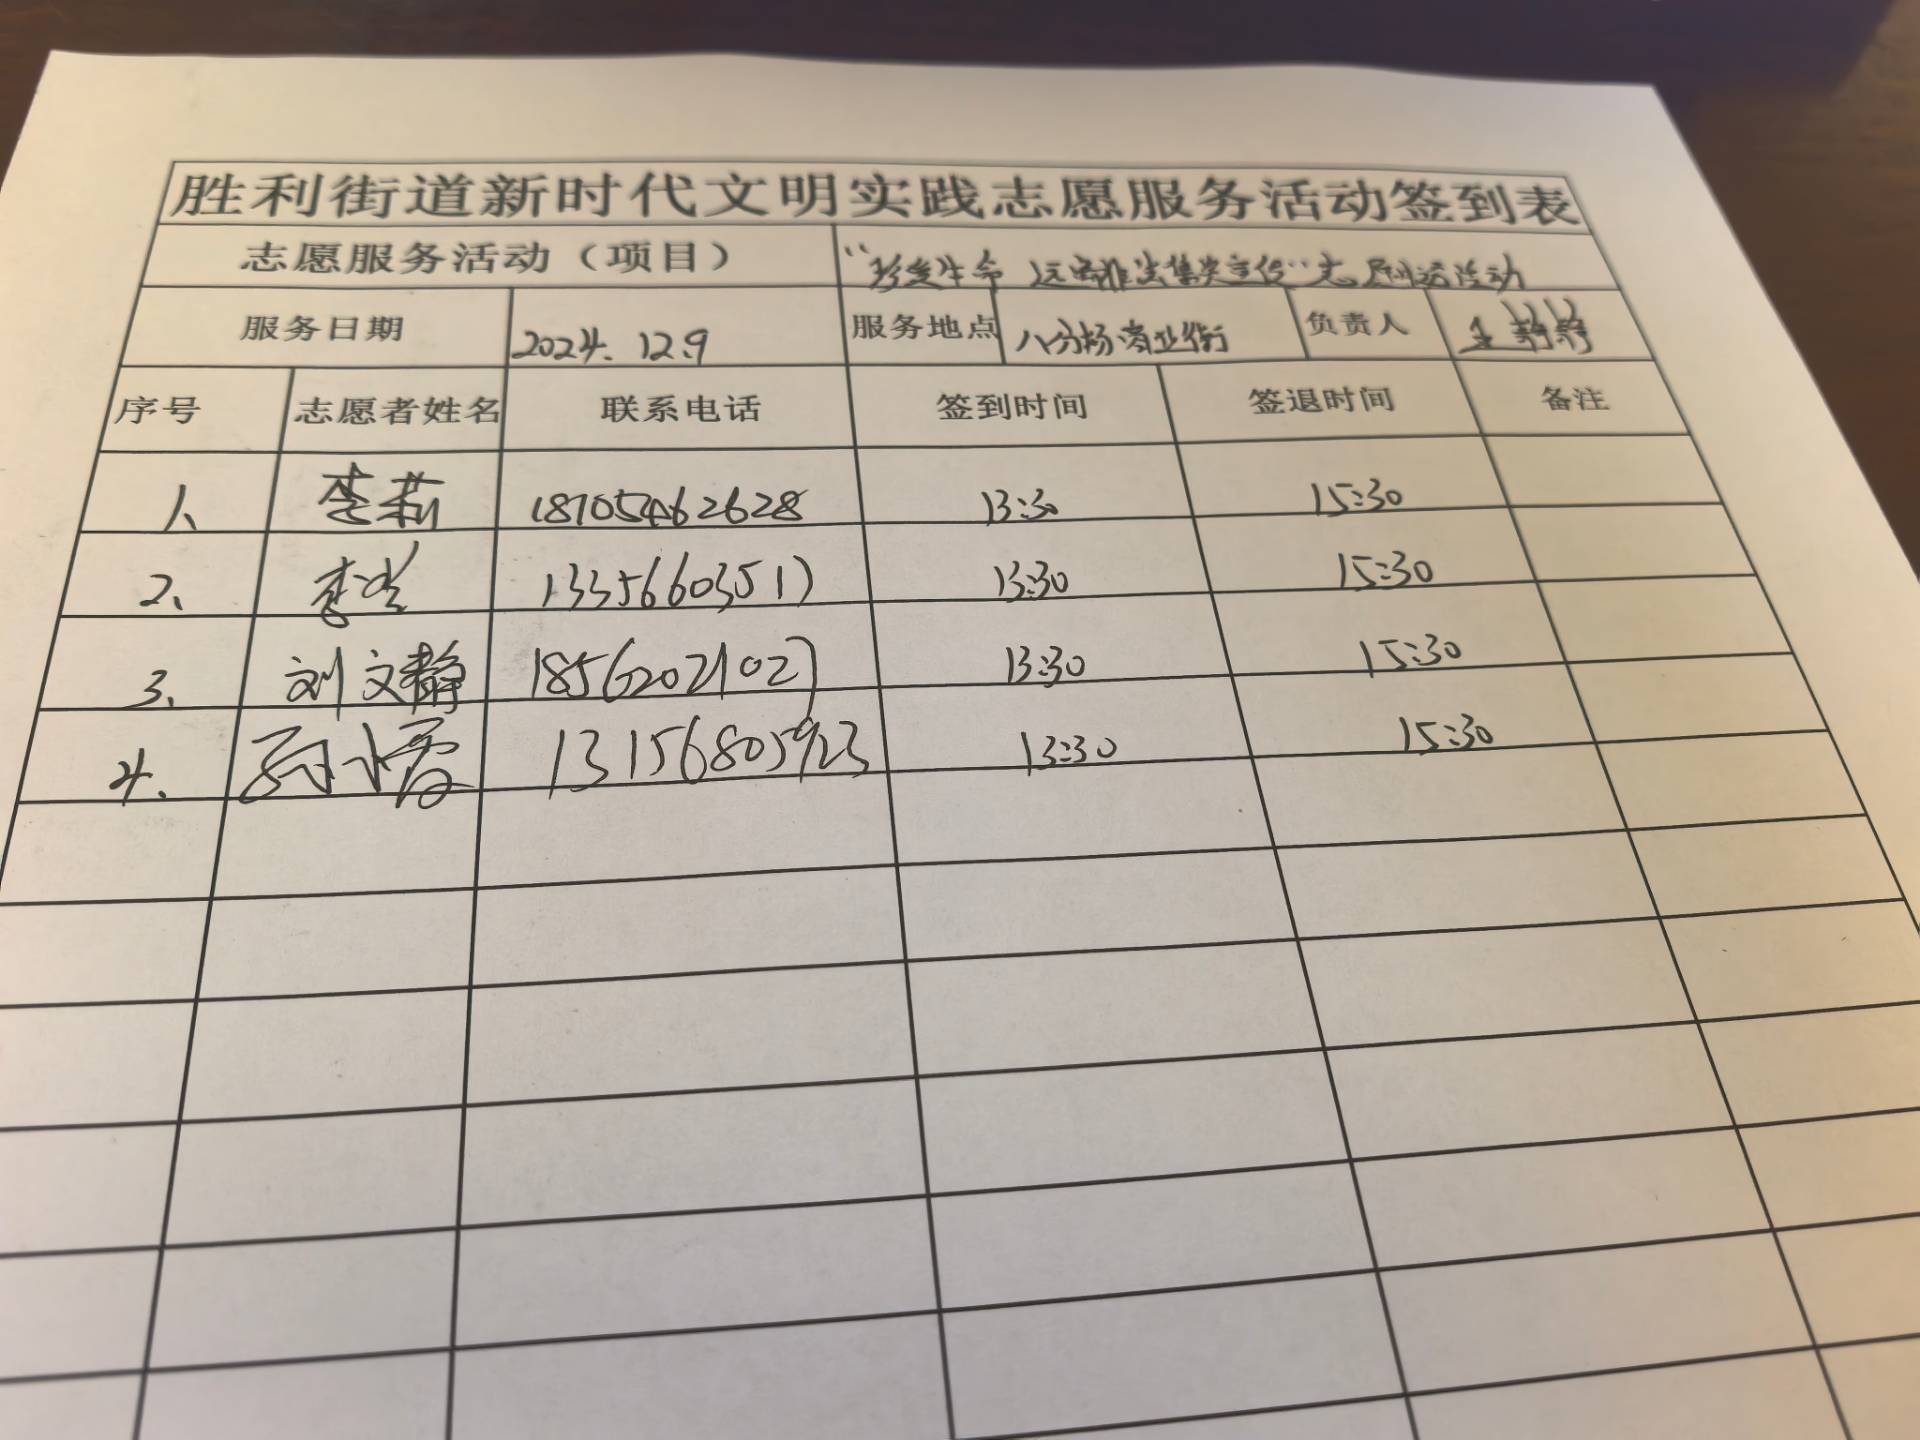 胜利街道新时代文明实践志愿服务活动签到表
志愿服务活动（项目） “珍爱生命 远离非法集资宣传”志愿服务活动
服务日期 2024.12.9 服务地点 八分场商业街 负责人 王静静
序号 志愿者姓名 联系电话 签到时间 签退时间 备注
1、 李莉 18705462628 13:30 15:30
2、 李 13356603517 13:30 15:30
3、 刘文静 18562021027 13:30 15:30
4、 孙小 13156805923 13:30 15:30